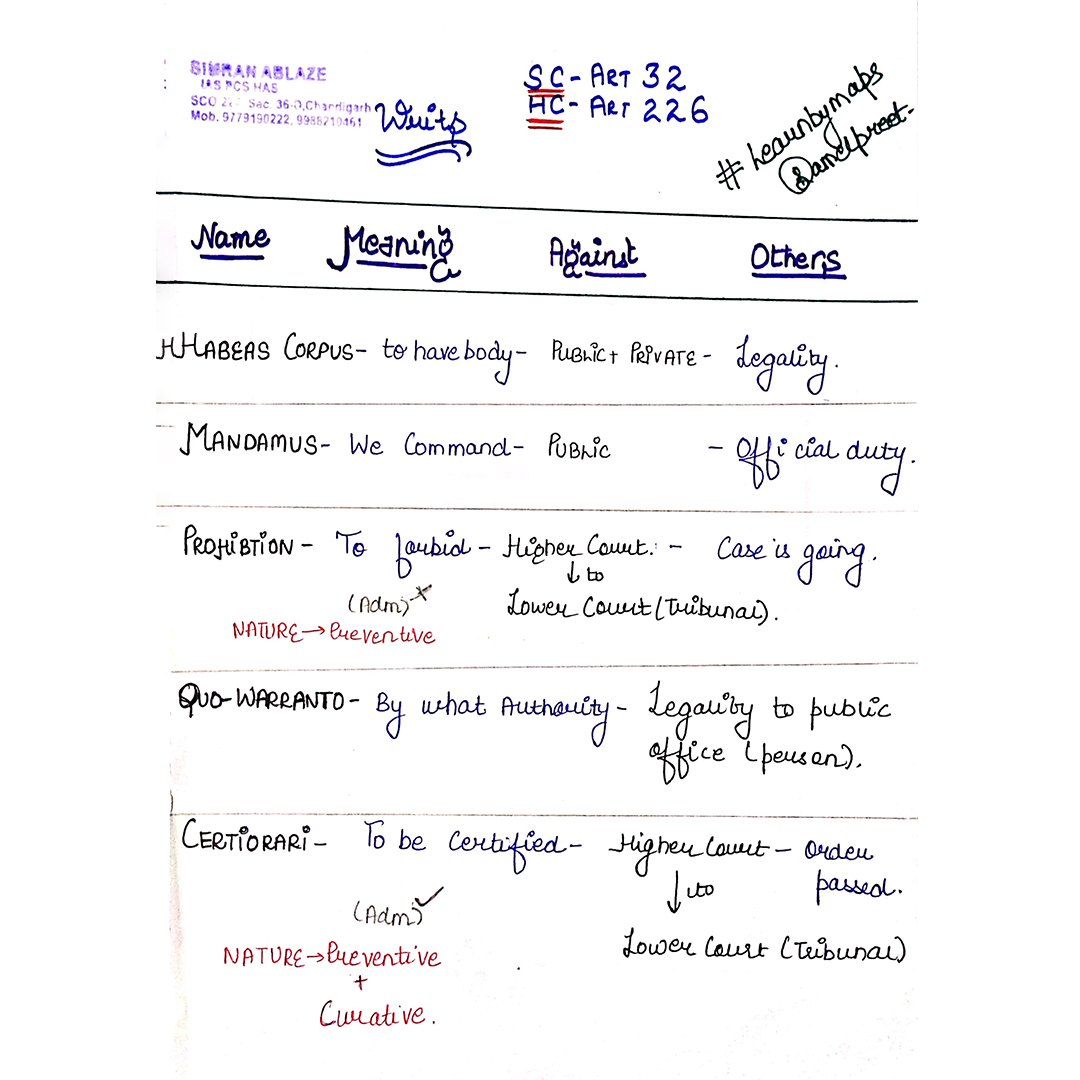 SIMRAN ABLAZE
IAS PCS HAS
SCO Sec. 36-D, Chandigarh
Mob. 9779190222, 9988210461
Writs
SC - ART 32
HC - ART 226
#Learnbymaps
Name Meaning Against Others
HABEAS CORPUS - to have body - PUBLIC + PRIVATE - Legality.
MANDAMUS - We Command - PUBLIC - Official duty.
PROHIBTION - To forbid - Higher Court. - Case is going.
↓ to
(Adm) × Lower Court (Tribunal).
NATURE → Preventive
QUO-WARRANTO - By what Authority - Legality to public
office (person).
CERTIORARI - To be Certified - Higher Court - Order
↓ to passed.
(Adm) ✓
NATURE → Preventive Lower Court (Tribunal)
+
Curative.